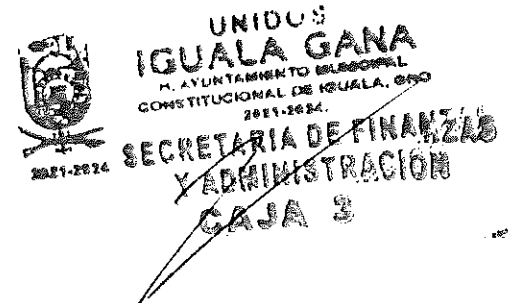 UNIDOS
IGUALA GANA
H. AYUNTAMIENTO MUNICIPAL
CONSTITUCIONAL DE IGUALA, GRO
2021-2024.
2021-2024
SECRETARIA DE FINANZAS
Y ADMINISTRACIÓN
CAJA 3